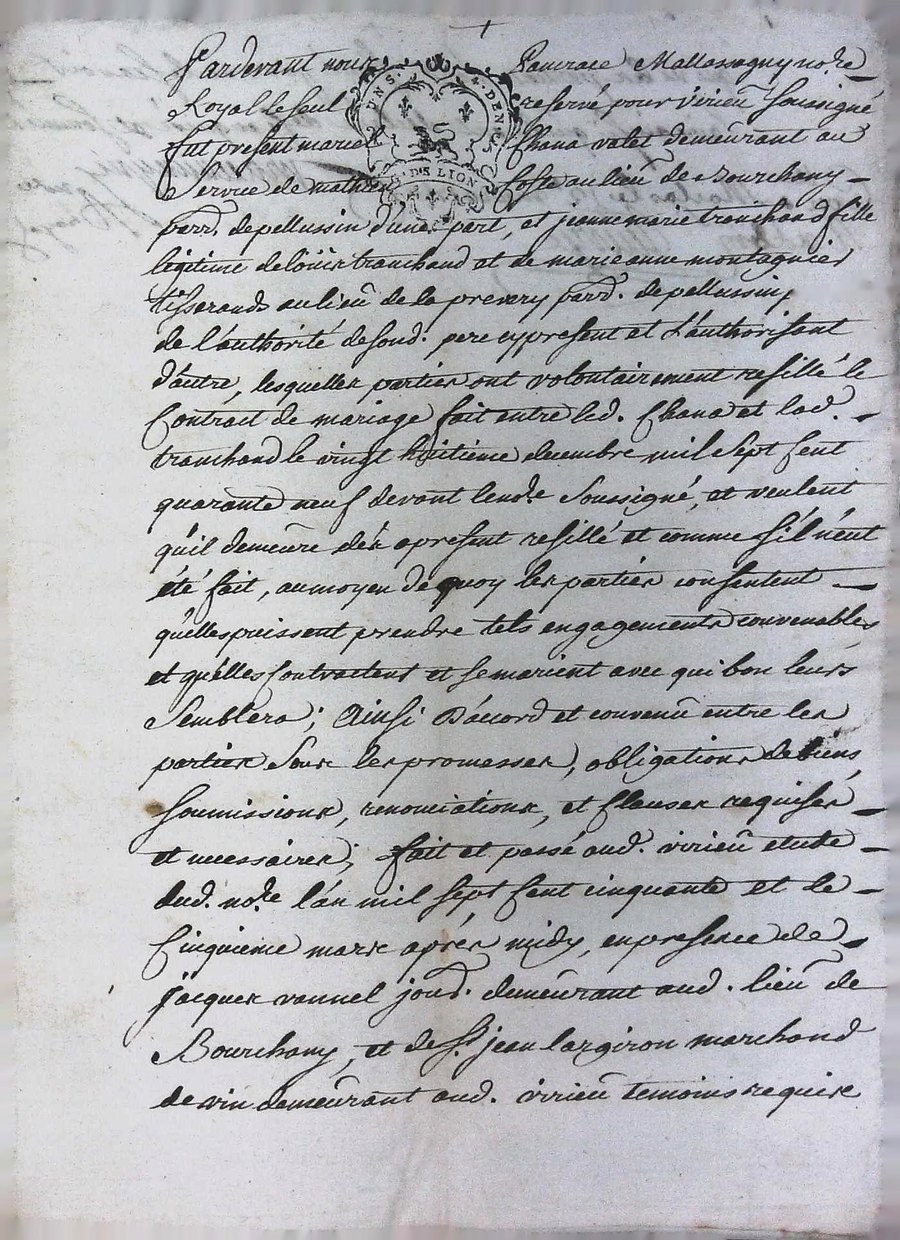 Pardevant nous Pancrace Mallassagny no.re
Royal le seul reservé pour virieu soussigné
fut present marcel Chana valet demeurant au
Service de mathieu Coste au lieu de Bourchany
parr. de pellussin d'une part, et jeanne marie tranchand fille
légitime de loüis tranchand et de marie anne montagnier
tisserands au lieu de la prevery parr. de pellussin
de l'authorité desond. pere cy present et L'authorisant
d'autre, lesquelles parties ont volontairement resillé le
Contract de mariage fait entre led. Chana et lad.
tranchand le vingt huitième decembre mil sept cent
quarante neuf devant le no.re Soussigné, et veulent
qu'il demeure dés apresent resillé et comme s'il n'eut
été fait, au moyen de quoy les parties consentent
qu'elles puissent prendre tels engagements convenables
et qu'elles contractent et se marient avec qui bon leurs
Semblera; Ainsi D'accord et convenu entre les
parties Sous les promesses, obligations de biens,
soumissions, renonciations, et clauses requises
et necessaires; fait et passé aud. virieu etude
dud. no.re l'an mil sept cent cinquante et le
Cinquieme mars après midy, en presence de
jacques vannel jourd. demeurant aud. lieu de
Bourchany, et de S.r jean largiron marchand
de vin demeurant aud. virieu temoins requis
UN S. 4. DEN.S
G. DE LION